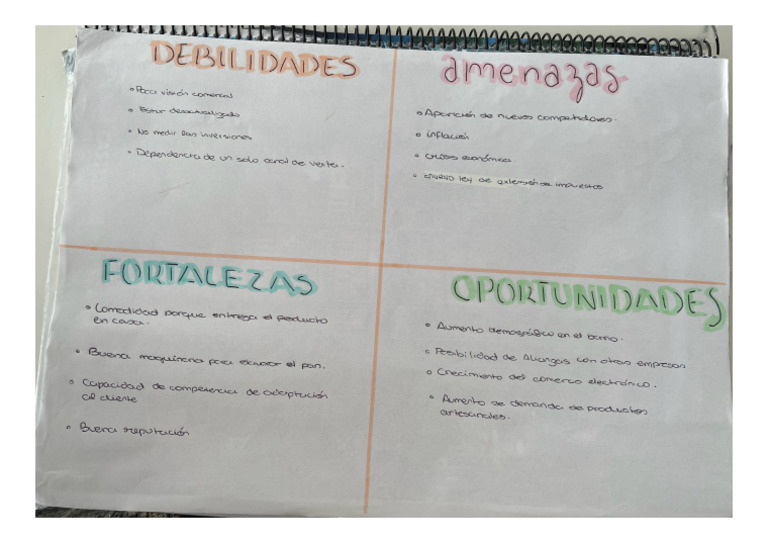 DEBILIDADES
• Poca visión comercial
• Estar desactualizado
• No medir las inversiones
• Dependencia de un solo canal de venta.
amenazas
• Aparición de nuevos competidores.
• inflación
• crisis económicas
• nuevo ley de extensión de impuestos
FORTALEZAS
• Comodidad porque entrega el producto
en casa.
• Buena maquinaria para elavorar el pan.
• Capacidad de competencia de adaptación
al cliente
• Buena reputación
OPORTUNIDADES
• Aumento demográfico en el barrio.
• Posibilidad de Alianzas con otras empresas
• Crecimiento del comercio electrónico.
• Aumento de demanda de productos
artesanales.